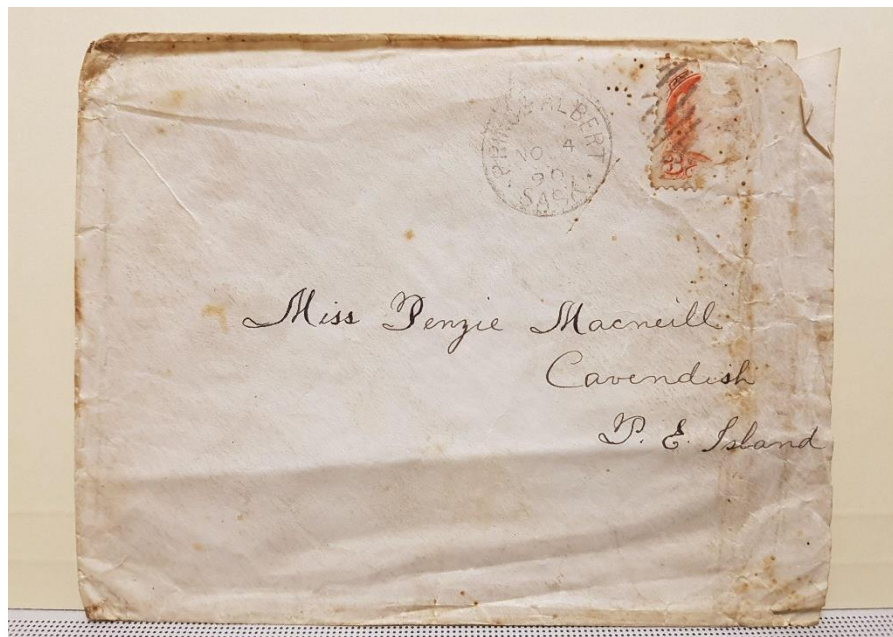 PRINCE ALBERT
NO 4
90
SASK.
3
Miss Penzie Macneill
Cavendish
P. E. Island